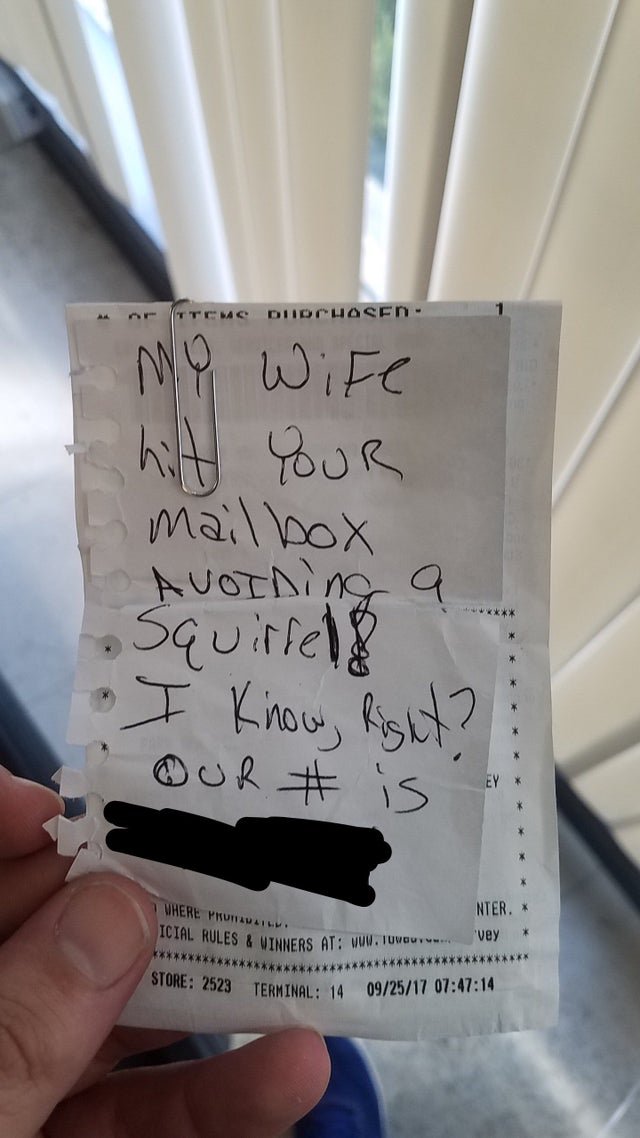 # OF ITEMS PURCHASED: 1
MY WiFe
hit YOUR
mailbox
AVOIDing a
Squirrel!
I Know, Right?
OUR # is
EY *
WHERE PROHIBITED. NTER. *
ICIAL RULES & WINNERS AT: www. vey *
**********************************
STORE: 2523 TERMINAL: 14 09/25/17 07:47:14